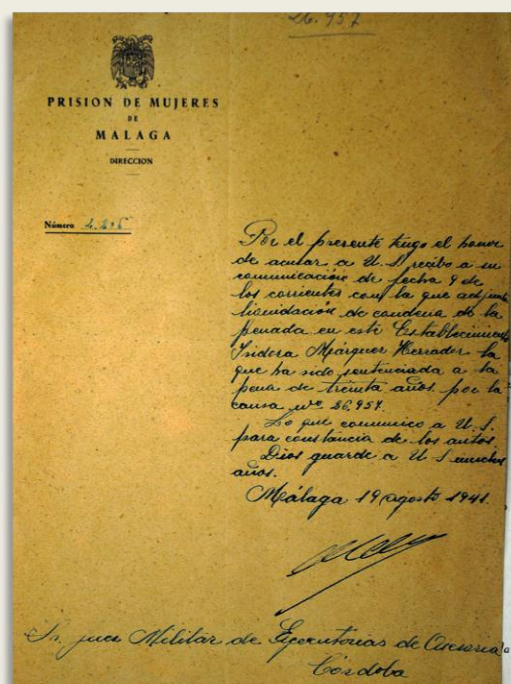 26.957
PRISION DE MUJERES
DE
MALAGA
DIRECCION
Número
Por el presente tengo el honor
de acusar a U.S. recibo a su
comunicación de fecha 9 de
los corrientes con la que adjunta
liquidación de condena de la
penada en este Establecimiento
Isidora Márquez Herrador la
que ha sido sentenciada a la
pena de treinta años por la
causa nº 26,957.
Lo que comunico a U.S.
para constancia de los autos.
Dios guarde a U.S. muchos
años.
Málaga 19 agosto 1941.
Sr. juez Militar de Ejecutorias de
Córdoba